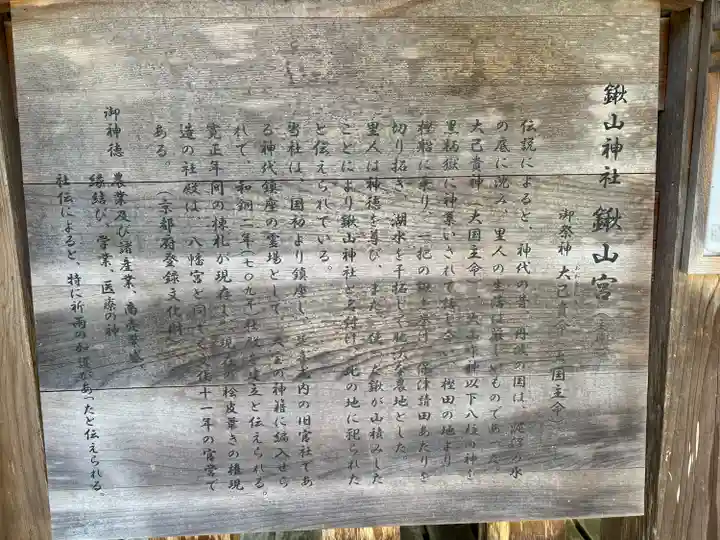 鍬山神社 鍬山宮
御祭神 大己貴命(大国主命)
伝説によると、神代の昔、丹波の国は、泥湖の水
の底に沈み、里人の生活は厳しきものであった。
大己貴神(大国主命)は、以下八柱の神を
黒柄獄に神集いされて話し合い、樫田の地より
樫船に乗り、一把の鍬を挙げ、保津請田あたりを
切り拓き、湖水を干拓して肥沃な農地とした。
里人は神徳を尊び、また、使った鍬が山積みした
ことにより鍬山神社と名付け、此の地に祀られた
と伝えられている。
当社は、国初より鎮座し、内の旧官社であ
る神代鎮座の霊場として、大宝の神籍に編入せら
れて、和銅二年(七〇九年)社殿を建立と伝えられる。
寛正年間の棟札が現存し、現在の桧皮葺きの権現
造の社殿は、八幡宮と同じく文化十一年の官営で
ある。(京都府登録文化財)
御神徳 農業及び諸産業、商売繁盛、
縁結び、学業、医療の神
社伝によると、特に祈雨のがあったと伝えられる。